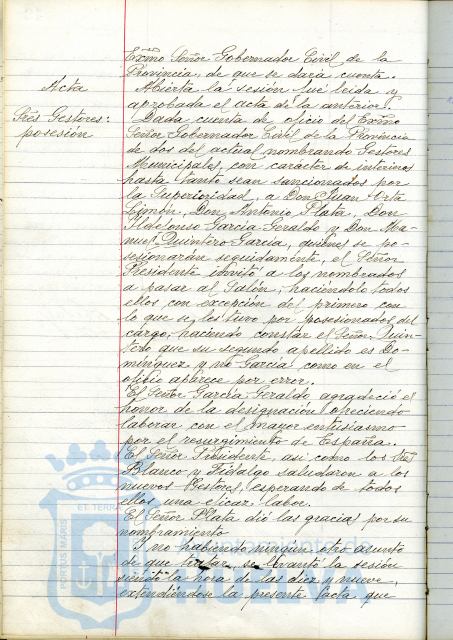 Exmo Señor Gobernador Civil de la
Provincia, de que se dará cuenta.
Acta
Abierta la sesión fué leida y
aprobada el acta de la anterior.
Tres Gestores:
posesión
Dada cuenta de oficio del Exmo
Señor Gobernador Civil de la Provincia
de dos del actual nombrando Gestores
Municipales, con carácter de interinos
hasta tanto sean sancionados por
la Superioridad, a Don Juan
Limón, Don Antonio Plata, Don
Ildefonso García Geraldo y Don Ma-
nuel Quintero García, quienes se po-
sesionarán seguidamente, el Señor
Presidente invitó a los nombrados
a pasar al Salón, haciéndolo todos
ellos con excepción del primero con
lo que se les tuvo por posesionados del
cargo, haciendo constar el Señor Quin-
tero que su segundo apellido es Do-
mínguez y no García como en el
oficio aparece por error.
El Señor García Geraldo agradeció el
honor de la designación ofreciendo
laborar con el mayor entusiasmo
por el resurgimiento de España.
El Señor Presidente, así como los Sres
Blanco y Fidalgo saludaron a los
nuevos Gestores, esperando de todos
ellos una eficaz labor.
El Señor Plata dió las gracias por su
nombramiento
Y no habiendo ningún otro asunto
de que tratar, se levantó la sesión
siendo la hora de las diez y nueve,
extendiéndose la presente acta que
PORTUS MARIS
ET TERRAE
Ayuntamiento de
HUELVA